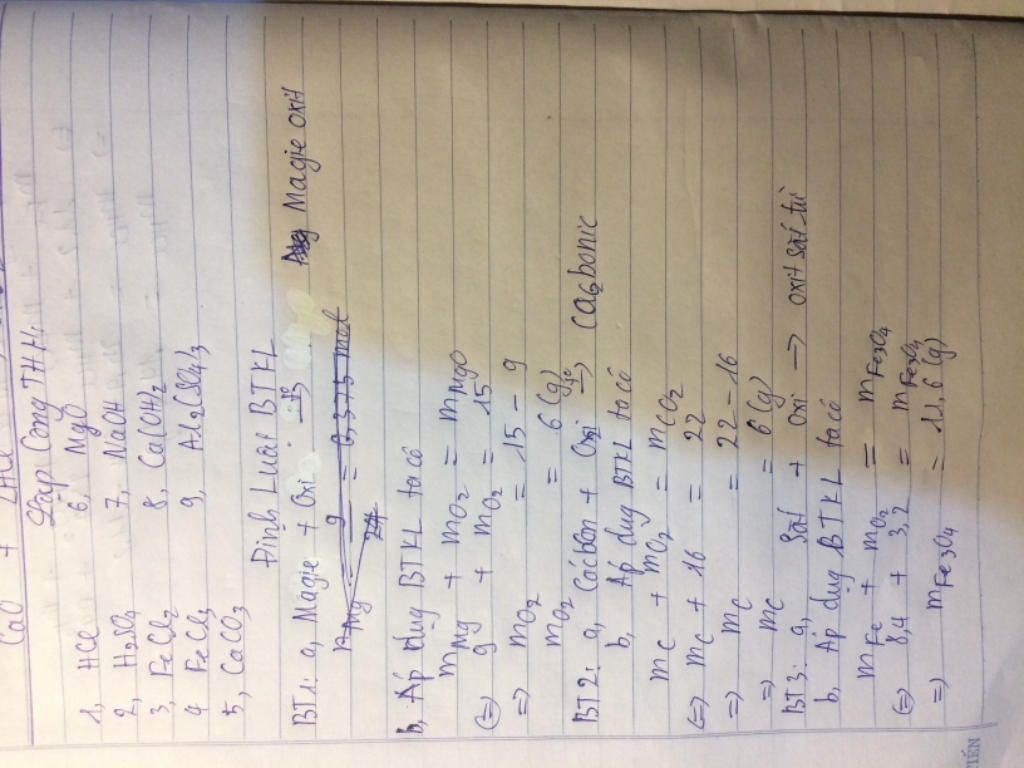 CaO + 2HCl
Lập Công THHH
1, HCl 6, MgO
2, H2SO4 7, NaOH
3, FeCl2 8, Ca(OH)2
4 FeCl3 9, Al2(SO4)3
5, CaCO3
Định Luật BTKL
BT1: a, Magie + Oxi → Magie oxit
nMg = 9/24 = 0,375 mol
b, Áp dụng BTKL ta có
mMg + mO2 = mMgO
(=) 9 + mO2 = 15
=) mO2 = 15 - 9
mO2 = 6 (g)
BT2: a, Cácbon + Oxi → Cacbonic
b, Áp dụng BTKL ta có
mC + mO2 = mCO2
(=) mC + 16 = 22
=) mC = 22 - 16
=) mC = 6 (g)
BT3: a, Sắt + Oxi → oxit sắt từ
b, Áp dụng BTKL ta có
mFe + mO2 = mFe3O4
(=) 8,4 + 3,2 = mFe3O4
=) mFe3O4 = 11,6 (g)
TIẾN